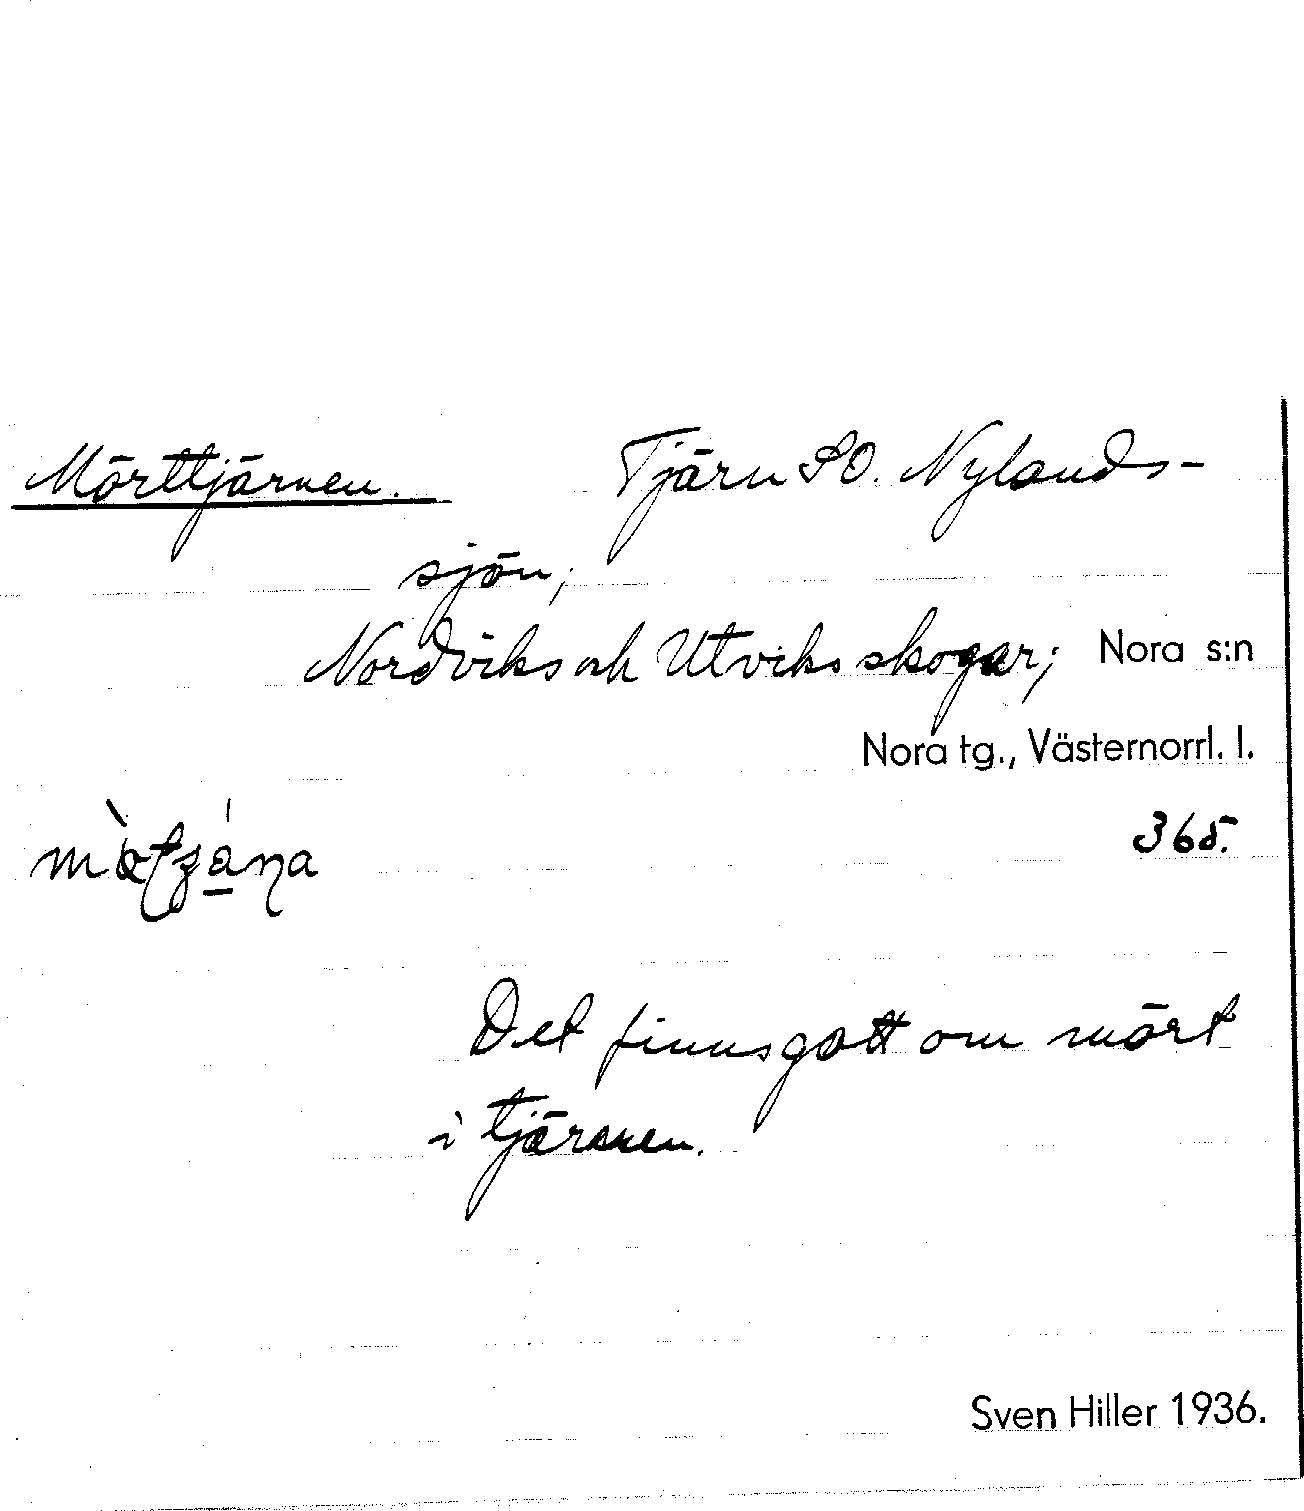 Mörttjärnen. Tjärn SO. Nylands-
sjön;
Nordviks och Utviks skogar; Nora s:n
Nora tg., Västernorrl. l.
365.
Det finns gott om mört
i tjärnen.
Sven Hiller 1936.